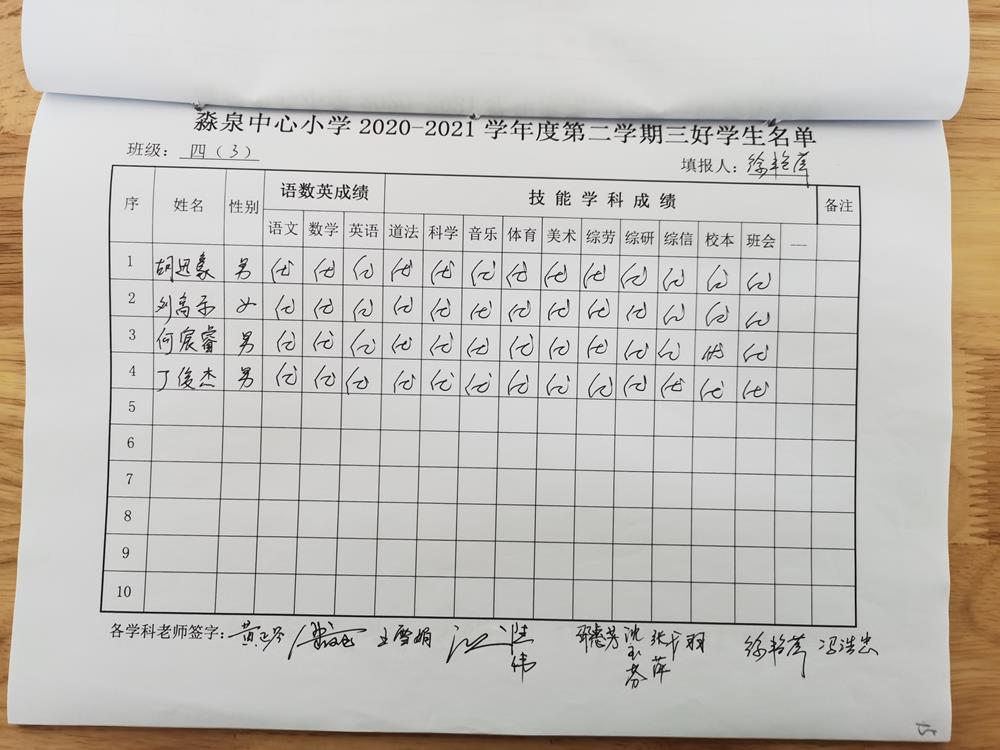 淼泉中心小学 2020-2021 学年度第二学期三好学生名单
班级： 四（3） 填报人：徐艳萍
序 姓名 性别 语数英成绩 技能学科成绩 备注
语文 数学 英语 道法 科学 音乐 体育 美术 综劳 综研 综信 校本 班会
1 胡迅豪 男 优 优 优 优 优 优 优 优 优 优 优 优 优
2 刘高乐 女 优 优 优 优 优 优 优 优 优 优 优 优 优
3 何宸睿 男 优 优 优 优 优 优 优 优 优 优 优 优 优
4 丁俊杰 男 优 优 优 优 优 优 优 优 优 优 优 优 优
5
6
7
8
9
10
各学科老师签字： 王雪娟 沈玉芬 冯浩忠
15